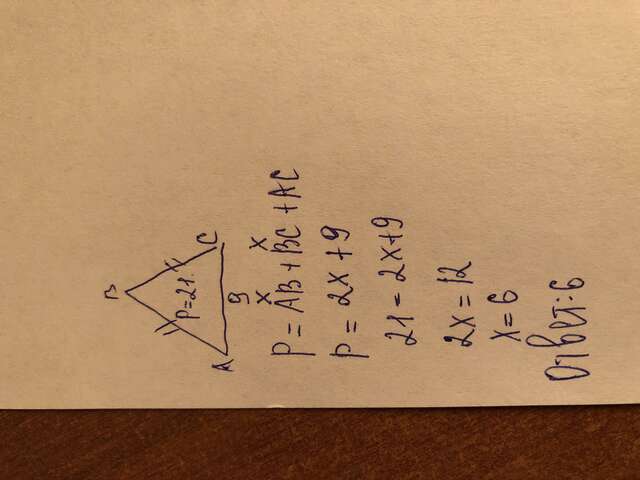 B
P=21.
A
C
9
x x
P = AB + BC + AC
P = 2x + 9
21 = 2x + 9
2x = 12
x = 6
Ответ: 6